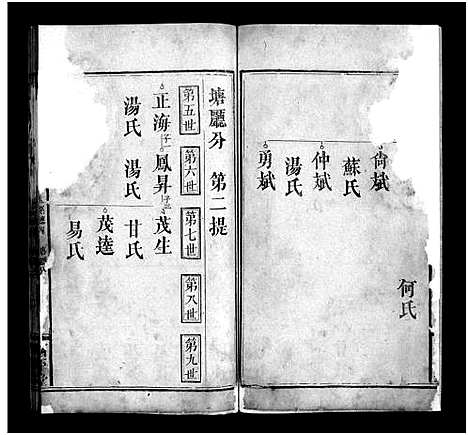 尙斌
蘇氏
仲斌
湯氏
勇斌
何氏
塘廳分 第二提
第五世 第六世 第七世 第八世 第九世
正海 子一 鳳昇 子二 茂生
湯氏 湯氏 甘氏
茂逵
易氏